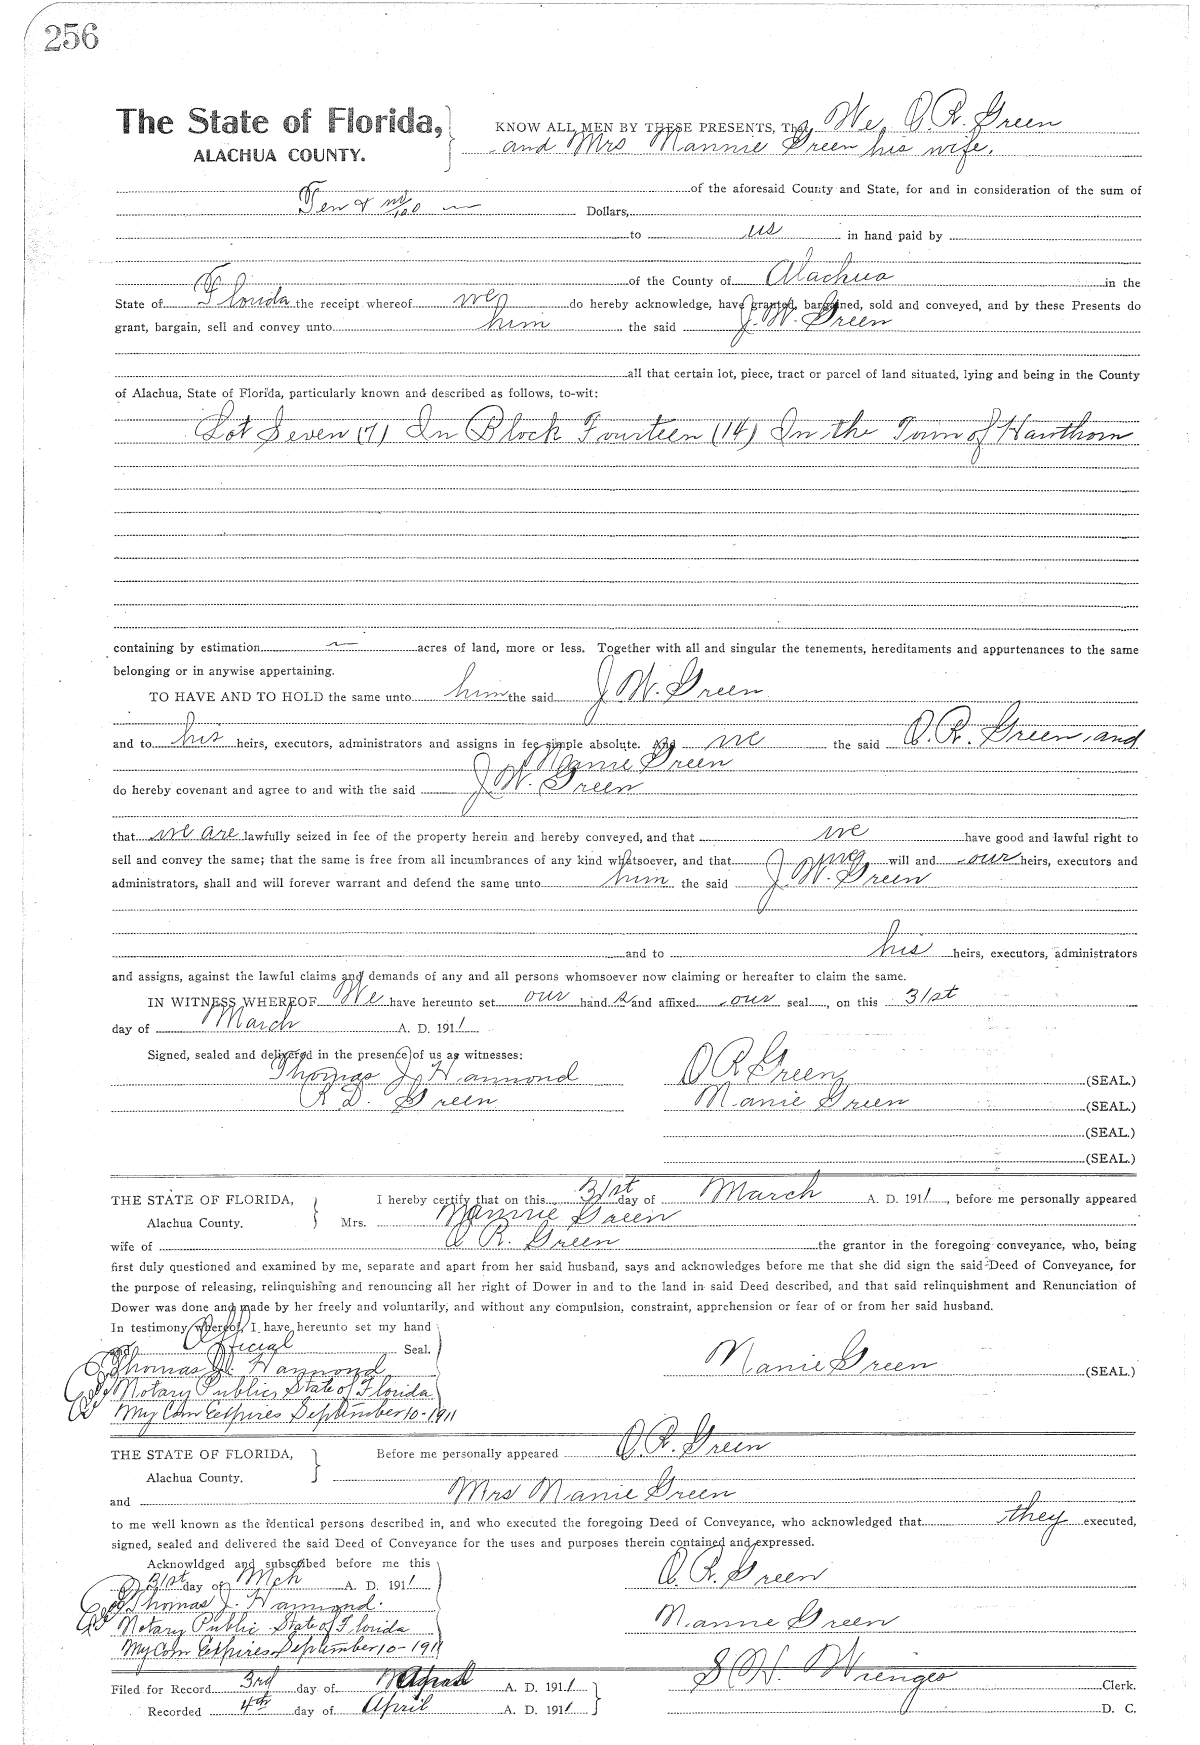 256
The State of Florida, KNOW ALL MEN BY THESE PRESENTS, That We, O. R. Green
ALACHUA COUNTY. and Mrs Nannie Green his wife.
of the aforesaid County and State, for and in consideration of the sum of
Ten & no/100 Dollars,
to us in hand paid by
of the County of Alachua in the
State of Florida the receipt whereof we do hereby acknowledge, have granted, bargained, sold and conveyed, and by these Presents do
grant, bargain, sell and convey unto him the said J. W. Green
all that certain lot, piece, tract or parcel of land situated, lying and being in the County
of Alachua, State of Florida, particularly known and described as follows, to-wit:
Lot Seven (7) In Block Fourteen (14) In the Town of Hawthorn
containing by estimation — acres of land, more or less. Together with all and singular the tenements, hereditaments and appurtenances to the same
belonging or in anywise appertaining.
TO HAVE AND TO HOLD the same unto him the said J. W. Green
and to his heirs, executors, administrators and assigns in fee simple absolute. And we the said O. R. Green, and
Nannie Green
do hereby covenant and agree to and with the said J. W. Green
that we are lawfully seized in fee of the property herein and hereby conveyed, and that we have good and lawful right to
sell and convey the same; that the same is free from all incumbrances of any kind whatsoever, and that we will and our heirs, executors and
administrators, shall and will forever warrant and defend the same unto him the said J. W. Green
and to his heirs, executors, administrators
and assigns, against the lawful claims and demands of any and all persons whomsoever now claiming or hereafter to claim the same.
IN WITNESS WHEREOF We have hereunto set our hand s and affixed our seal, on this 31st
day of March A. D. 1911.
Signed, sealed and delivered in the presence of us as witnesses:
Thomas J. Hammond O R Green (SEAL.)
R D. Green Nanie Green (SEAL.)
(SEAL.)
(SEAL.)
THE STATE OF FLORIDA, I hereby certify that on this 31st day of March A. D. 1911, before me personally appeared
Alachua County. Mrs. Nannie Green
wife of O R. Green the grantor in the foregoing conveyance, who, being
first duly questioned and examined by me, separate and apart from her said husband, says and acknowledges before me that she did sign the said Deed of Conveyance, for
the purpose of releasing, relinquishing and renouncing all her right of Dower in and to the land in said Deed described, and that said relinquishment and Renunciation of
Dower was done and made by her freely and voluntarily, and without any compulsion, constraint, apprehension or fear of or from her said husband.
In testimony whereof, I have hereunto set my hand
and Official Seal.
Thomas J. Hammond Nanie Green (SEAL.)
Notary Public, State of Florida
My Com Expires September 10-1911
THE STATE OF FLORIDA, Before me personally appeared O. R. Green
Alachua County.
and Mrs Nanie Green
to me well known as the identical persons described in, and who executed the foregoing Deed of Conveyance, who acknowledged that they executed,
signed, sealed and delivered the said Deed of Conveyance for the uses and purposes therein contained and expressed.
Acknowldged and subscribed before me this
31st day of Mch A. D. 1911 O. R. Green
Thomas J. Hammond.
Notary Public State of Florida Nannie Green
My Com Expires September 10-1911
Filed for Record 3rd day of April A. D. 1911 S H. Wienges Clerk.
Recorded 4th day of April A. D. 1911 D. C.